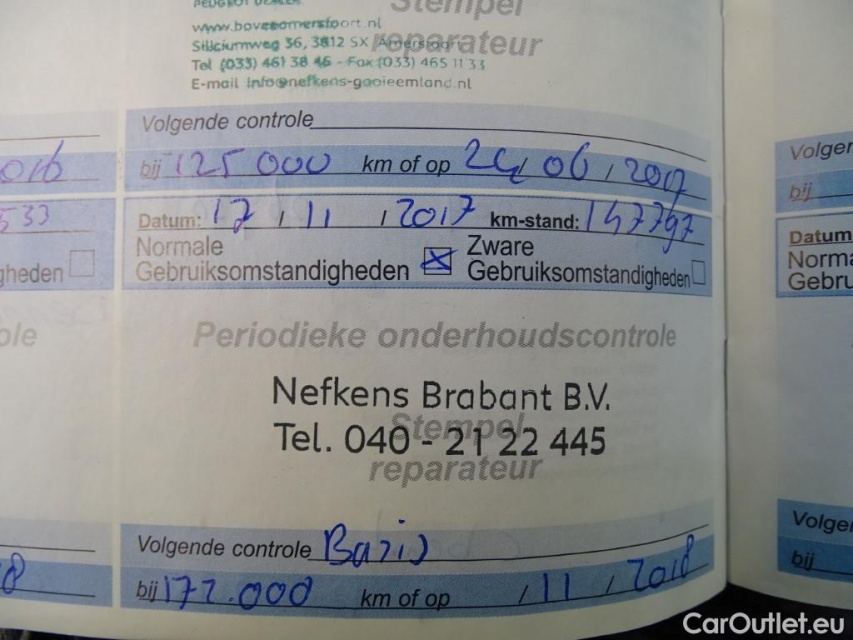 Stempel
reparateur
www.bovesamersfoort.nl
Siliciumweg 36, 3812 SX Amersfoort
Tel (033) 461 38 46 - Fax (033) 465 11 33
E-mail info@nefkens-gooieemland.nl
Volgende controle
bij 125 000 km of op 24/06/2017
Datum: 17/11/2017 km-stand: 147797
Normale Gebruiksomstandigheden
Zware Gebruiksomstandigheden
Periodieke onderhoudscontrole
Nefkens Brabant B.V.
Stempel
Tel. 040 - 21 22 445
reparateur
Volgende controle Basis
bij 172.000 km of op /11/2018
016
533
gheden
ole
8
Volger
bij
Datum
Norma
Gebru
Volge
bij
CarOutlet.eu